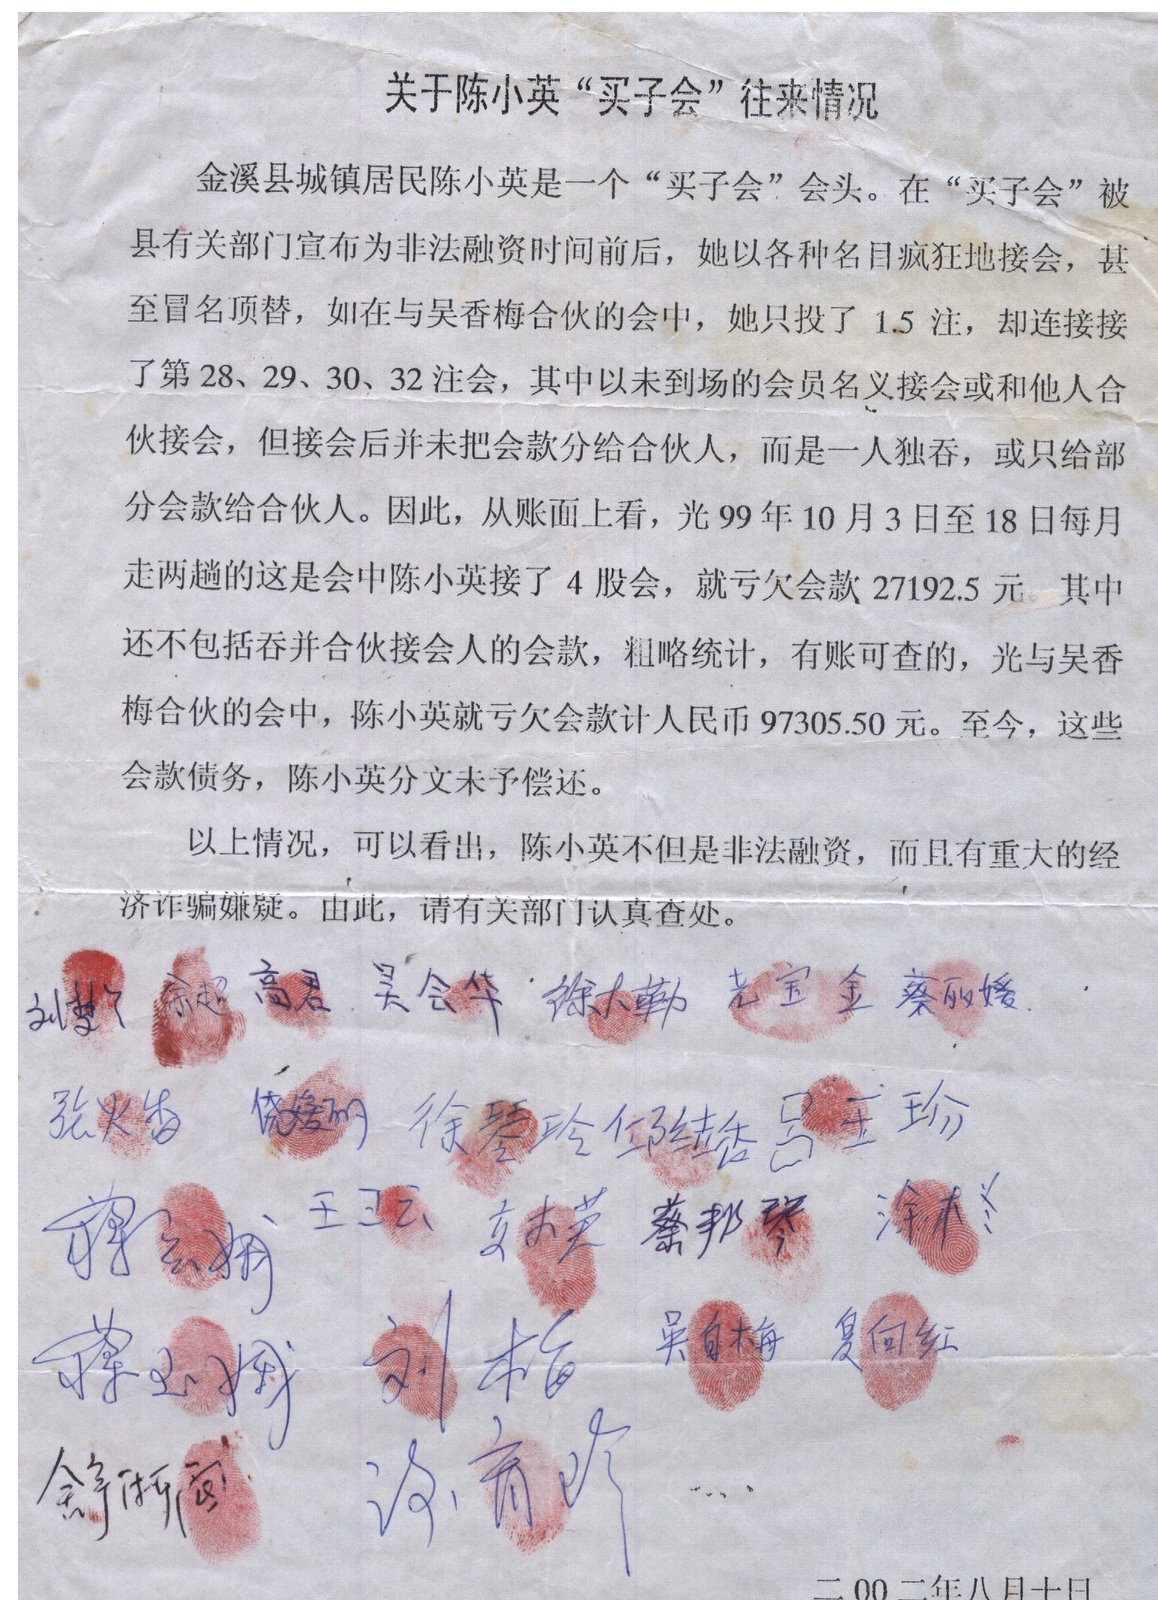 关于陈小英“买子会”往来情况
金溪县城镇居民陈小英是一个“买子会”会头。在“买子会”被
县有关部门宣布为非法融资时间前后，她以各种名目疯狂地接会，甚
至冒名顶替，如在与吴香梅合伙的会中，她只投了 1.5 注，却连接接
了第 28、29、30、32 注会，其中以未到场的会员名义接会或和他人合
伙接会，但接会后并未把会款分给合伙人，而是一人独吞，或只给部
分会款给合伙人。因此，从账面上看，光 99 年 10 月 3 日至 18 日每月
走两趟的这是会中陈小英接了 4 股会，就亏欠会款 27192.5 元 其中
还不包括吞并合伙接会人的会款，粗略统计，有账可查的，光与吴香
梅合伙的会中，陈小英就亏欠会款计人民币 97305.50 元。至今，这些
会款债务，陈小英分文未予偿还。
以上情况，可以看出，陈小英不但是非法融资，而且有重大的经
济诈骗嫌疑。由此，请有关部门认真查处。
高君 吴会华 徐大勤 宝金 蔡丽媛
张火 徐琴玲 吕玉珍
王卫云 蔡邦琴
刘梅 吴自梅 夏向红
二 00 二年八月十日